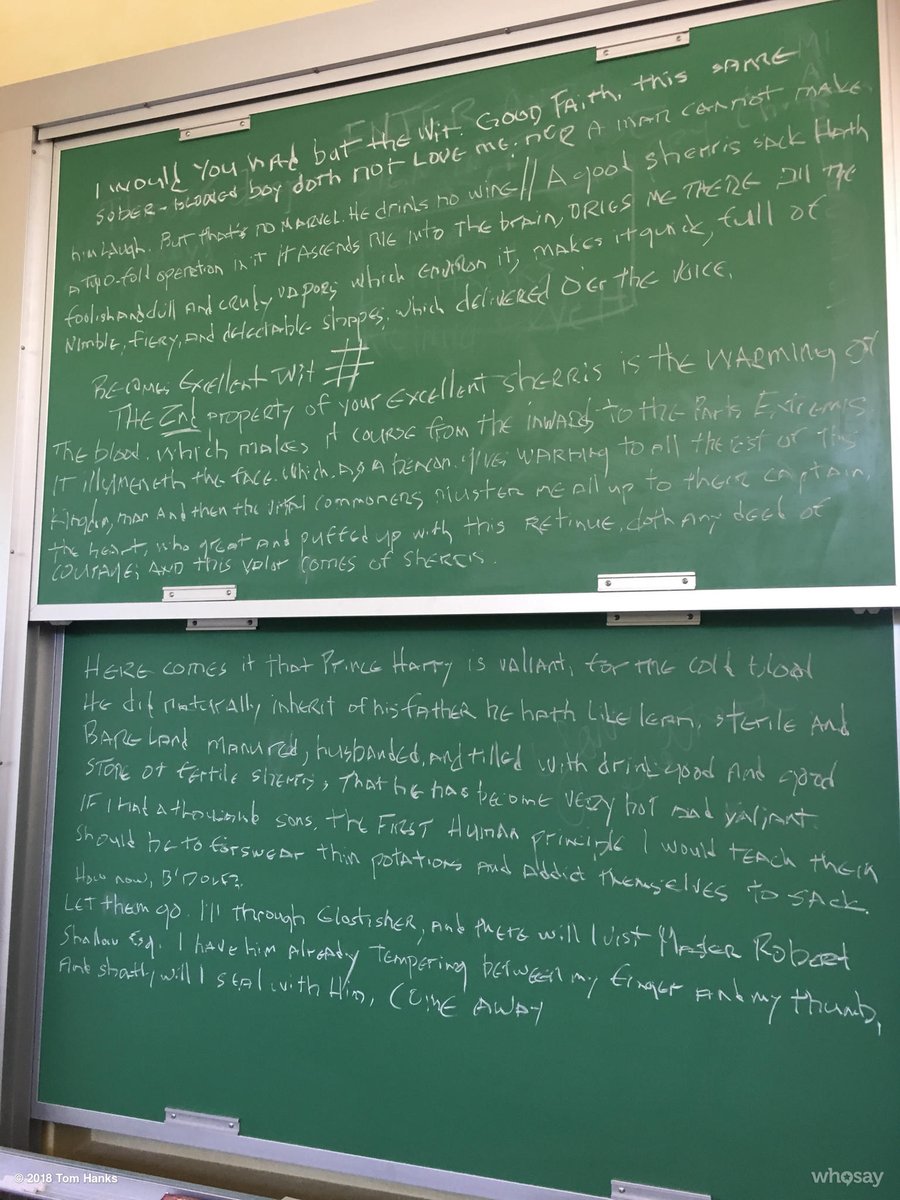 I would you had but the wit. Good faith, this same
sober-blooded boy doth not love me; nor a man cannot make
him laugh. But that's no marvel. He drinks no wine // A good sherris sack Hath
a two-fold operation in it It ascends me into the brain, dries me there all the
foolish and dull and crudy vapors which environ it, makes it quick, full of
Nimble, fiery, and delectable shapes, which delivered O'er the voice,
Becomes Excellent wit #
The 2nd property of your excellent sherris is the warming of
The blood. which makes it course from the inwards to the Parts Extremes
It illumeneth the face. which, as a beacon. gives warning to all the rest of this
Kingdom, man And then the vital commoners muster me all up to their captain,
the heart, who great and puffed up with this retinue. doth any deed of
courage; and this valor comes of sherris.
Here comes it that Prince Harry is valiant, for the cold blood
He did naturally inherit of his father he hath like lean, sterile and
Bare Land manured, husbanded, and tilled with drink good and good
store of fertile sherris, that he has become very hot and valiant.
If I had a thousand sons. the First Human principle I would teach them
should be to forswear thin potations and addict themselves to sack.
How now, B'Dolf?
Let them go. I'll through Glostisher, and there will I visit Master Robert
Shallow Esq. I have him already tempering between my finger and my thumb,
And shortly will I seal with Him, Come away
© 2018 Tom Hanks
whosay